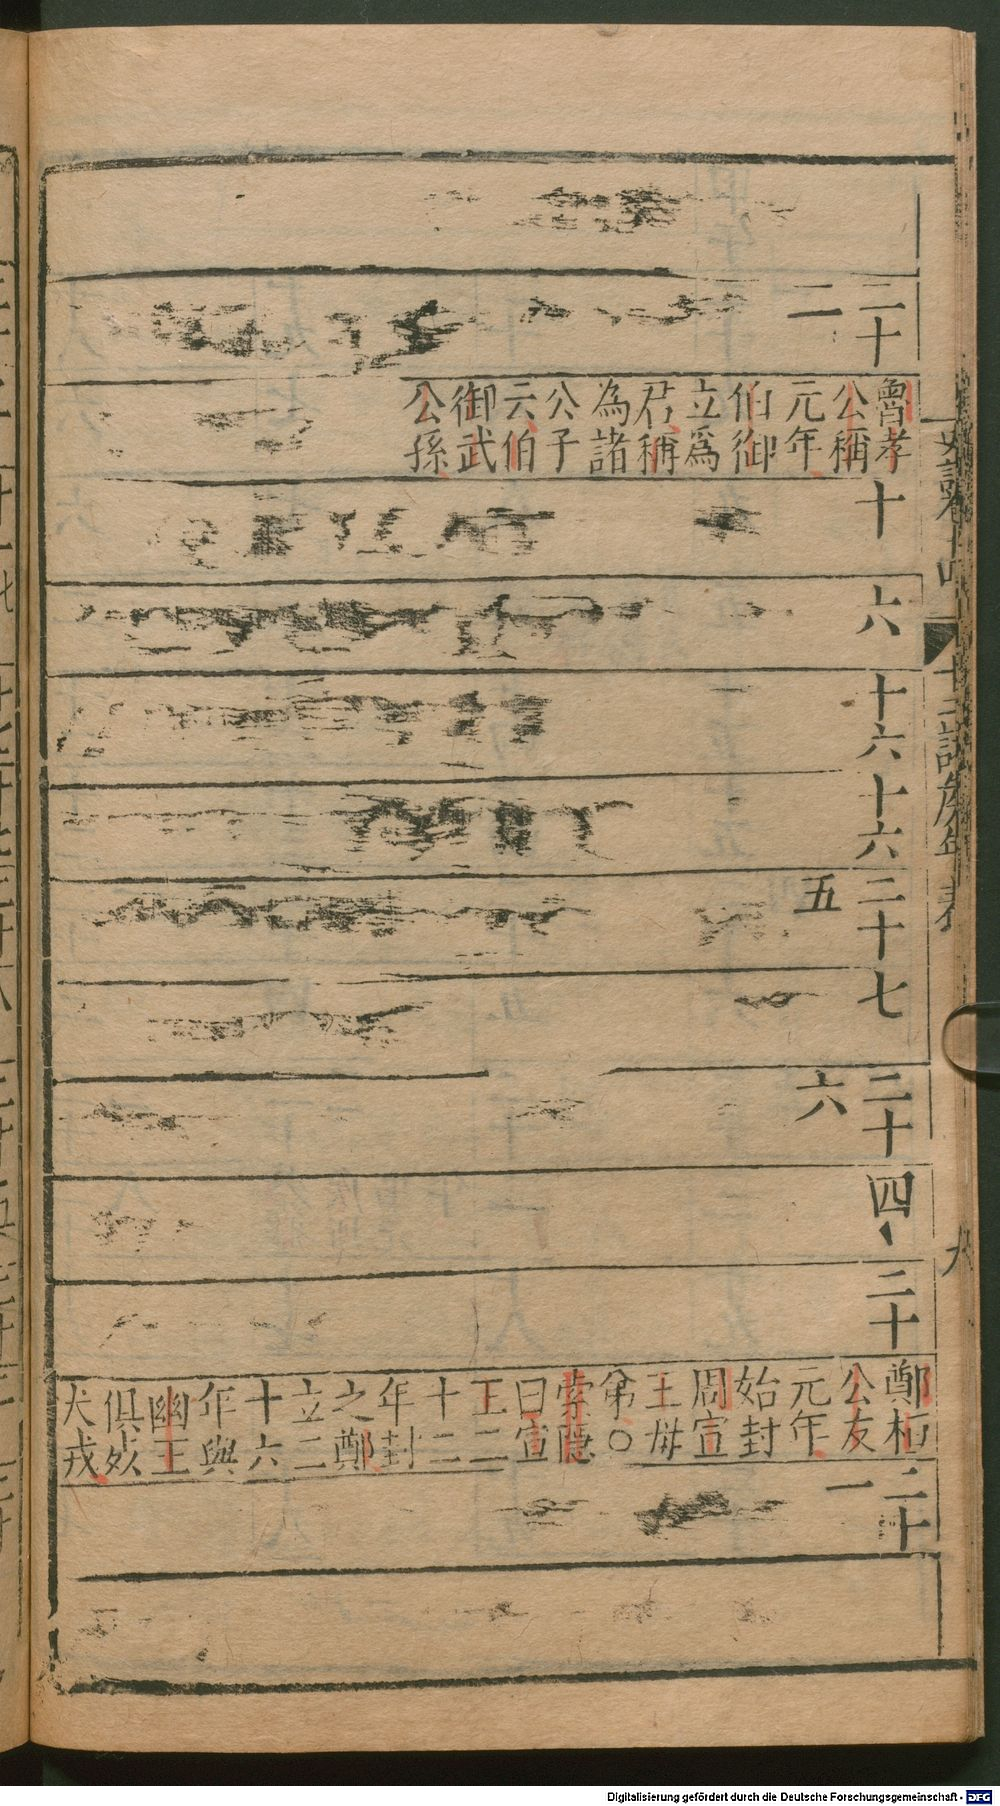 史記卷十四 十二諸侯年表 九
二十
二
魯孝
公稱
元年
伯御
立爲
君稱
為諸
公子
云伯
御武
公孫
十
六
十六
十六
二十
五
七
二十
六
四
二十
鄭桓
公友
元年
始封
周宣
王母
弟○
索隱
曰宣
王二
十二
年封
之鄭
立二
十六
年與
幽王
俱死
犬戎
二十
一
Digitalisierung gefördert durch die Deutsche Forschungsgemeinschaft - DFG